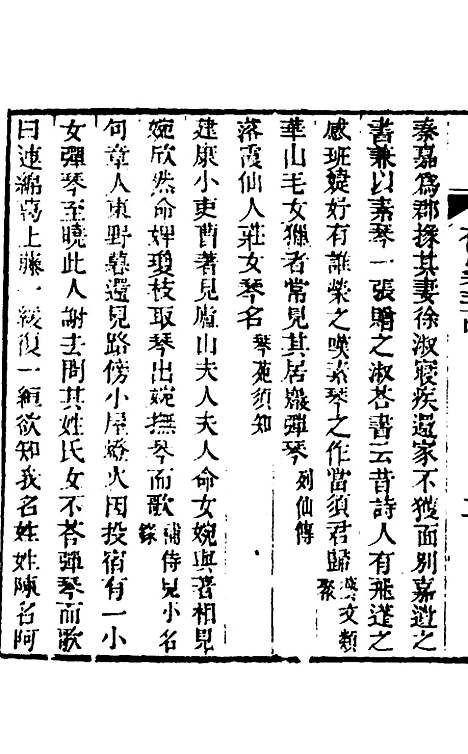 秦嘉爲郡掾其妻徐淑寢疾還家不獲面別嘉遣之
書兼以素琴一張贈之淑答書云昔詩人有飛蓬之
感班婕妤有誰榮之嘆素琴之作當須君歸藝文類聚
華山毛女獵者常見其居巖彈琴列仙傳
落霞仙人莊女琴名琴苑須知
建康小吏曹著見廬山夫人夫人命女婉與著相見
婉欣然命婢瓊枝取琴出婉撫琴而歌補侍兒小名錄
句章人東野暮還見路傍小屋燈火因投宿有一小
女彈琴至曉此人謝去問其姓氏女不答彈琴而歌
曰連綿葛上藤一緩復一絙欲知我名姓姓陳名阿